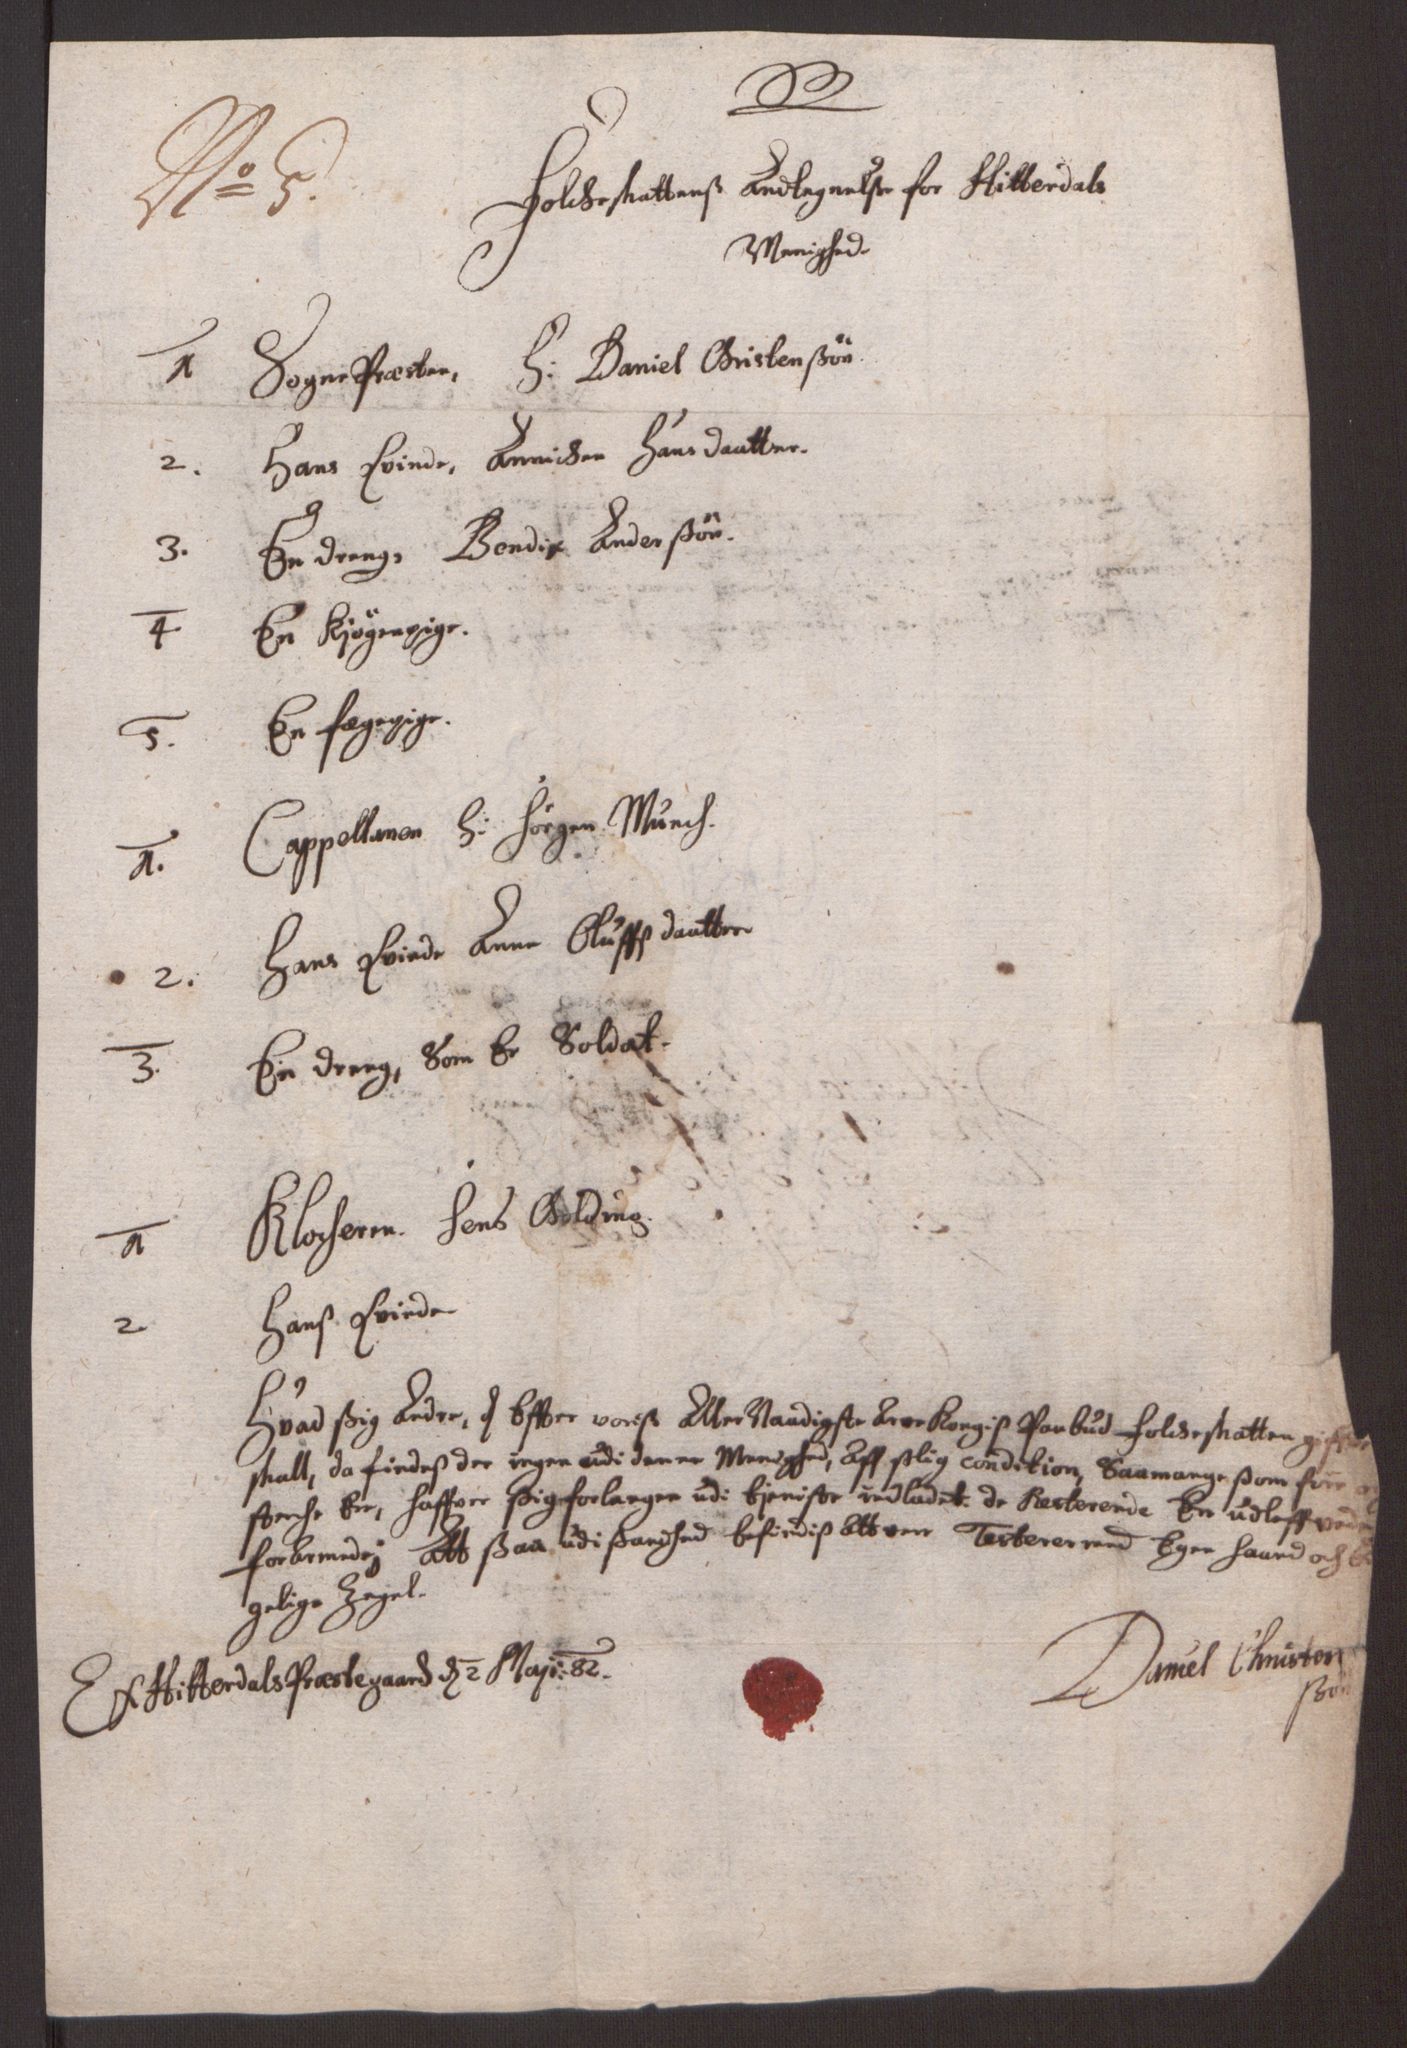 No 5.
Folcheskattens Andtegnelse for Hitterdals
Menighed.
1 SognePræsten, H: Daniel Christensøn
2. Hans Qvinde, Annichen Hansdaatter.
3. En dreng, Bendix Anderssøn.
4 En Kjøgepige.
5. En fægepige.
1. Cappellanen H: Jörgen Munch.
2. Hans Qvinde Anne Oluffsdaatter
3. En dreng, Som Er Soldat.
1 Klocheren. Jens Gilding.
2 Hanss Qvinde
Hvad ssig Andre, Effter voriss AllerNaadigste ArveKongis Paabud Folcheskatten
skall, da findess der ingen udi denne Menighed, Aff slig condition, Saamange ssom før
sterche Ere, haffver ssig forlengen udi tjeniste indladet. de Resterende Er udleffvede
forarmede; Att ssaa udi ssandhed befindiss Att vere Testerer med Egen haand och
gelige Zegel.
Ex HitterdalsPræstegaard d. 2 Maji: 82.
Daniel Christen
ssøn